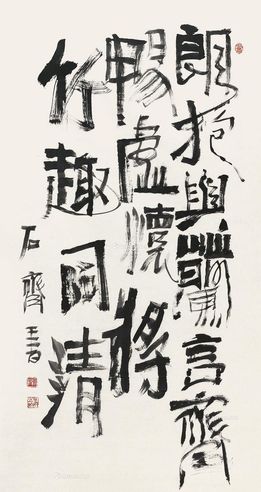 朗抱與蘭言齊
暢虛懷將
竹趣同清
石齊